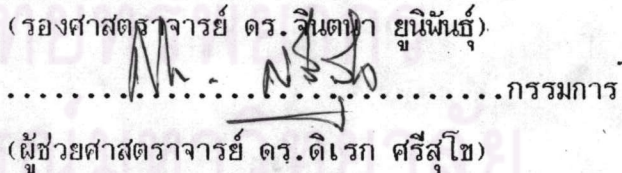 (รองศาสตราจารย์ ดร. จินตนา ยูนิพันธุ์)
......................................กรรมการ
(ผู้ช่วยศาสตราจารย์ ดร.ดิเรก ศรีสุโข)